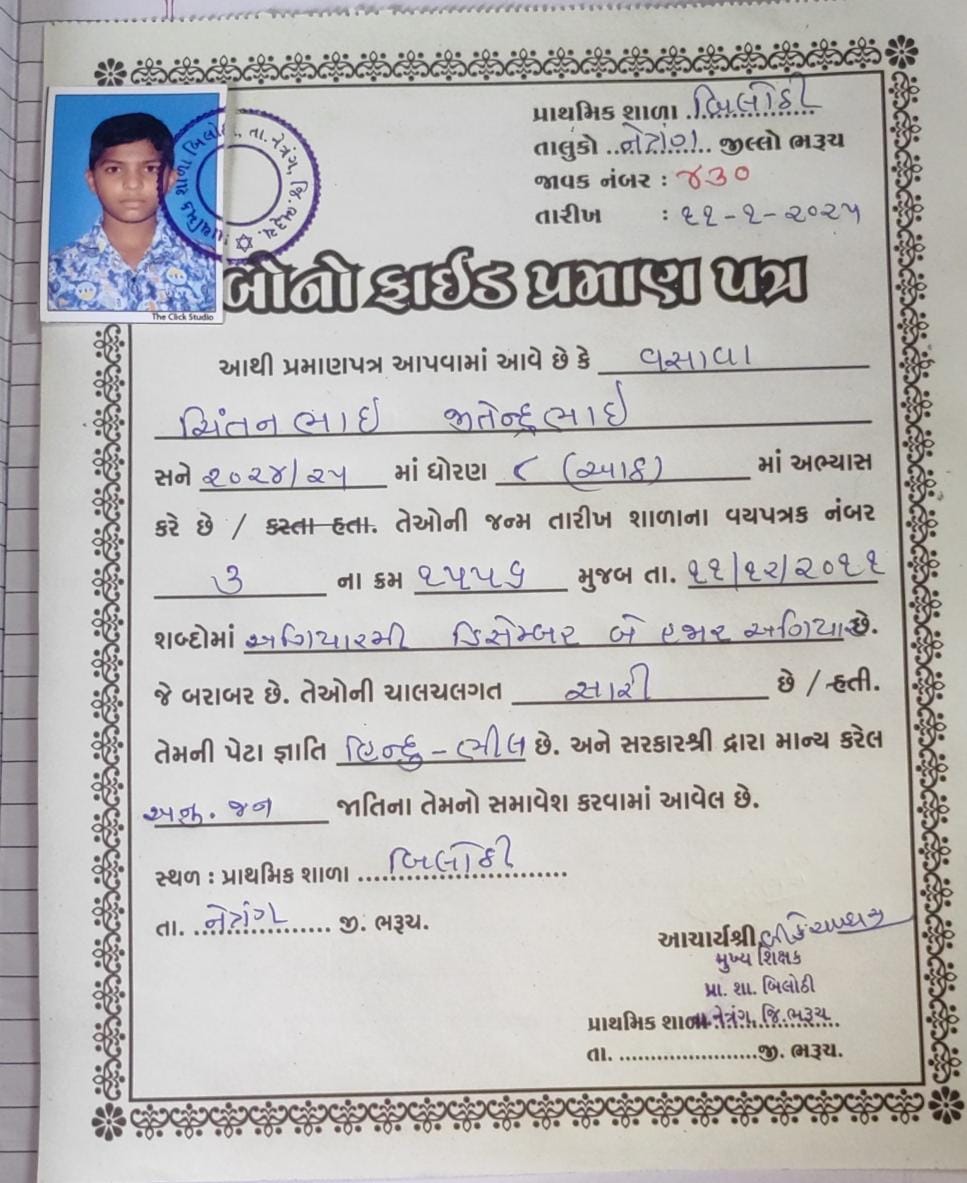 પ્રાથમિક શાળા બિલોઠી
તાલુકો નેત્રંગ જીલ્લો ભરૂચ
જાવક નંબર : ૪૩૦
તારીખ : ૨૧-૧-૨૦૨૫
પ્રાથમિક શાળા બિલોઠી, તા. નેત્રંગ, જિ. ભરૂચ.
The Click Studio
બોનોફાઈડ પ્રમાણ પત્ર
આથી પ્રમાણપત્ર આપવામાં આવે છે કે વસાવા
ચિંતનભાઈ જીતેન્દ્રભાઈ
સને ૨૦૨૪/૨૫ માં ધોરણ ૮ (આઠ) માં અભ્યાસ
કરે છે / કરતા હતા. તેઓની જન્મ તારીખ શાળાના વયપત્રક નંબર
૩ ના ક્રમ ૨૫૫૬ મુજબ તા. ૧૧/૧૨/૨૦૧૧
શબ્દોમાં અગિયારમી ડિસેમ્બર બે હજાર અગિયાર છે.
જે બરાબર છે. તેઓની ચાલચલગત સારી છે / હતી.
તેમની પેટા જ્ઞાતિ હિન્દુ - ભીલ છે. અને સરકારશ્રી દ્રારા માન્ય કરેલ
અનુ. જન જાતિના તેમનો સમાવેશ કરવામાં આવેલ છે.
સ્થળ : પ્રાથમિક શાળા બિલોઠી
તા. નેત્રંગ જી. ભરૂચ.
આચાર્યશ્રી
મુખ્ય શિક્ષક
પ્રા. શા. બિલોઠી
પ્રાથમિક શાળા નેત્રંગ, જિ. ભરૂચ
તા. ......................જી. ભરૂચ.